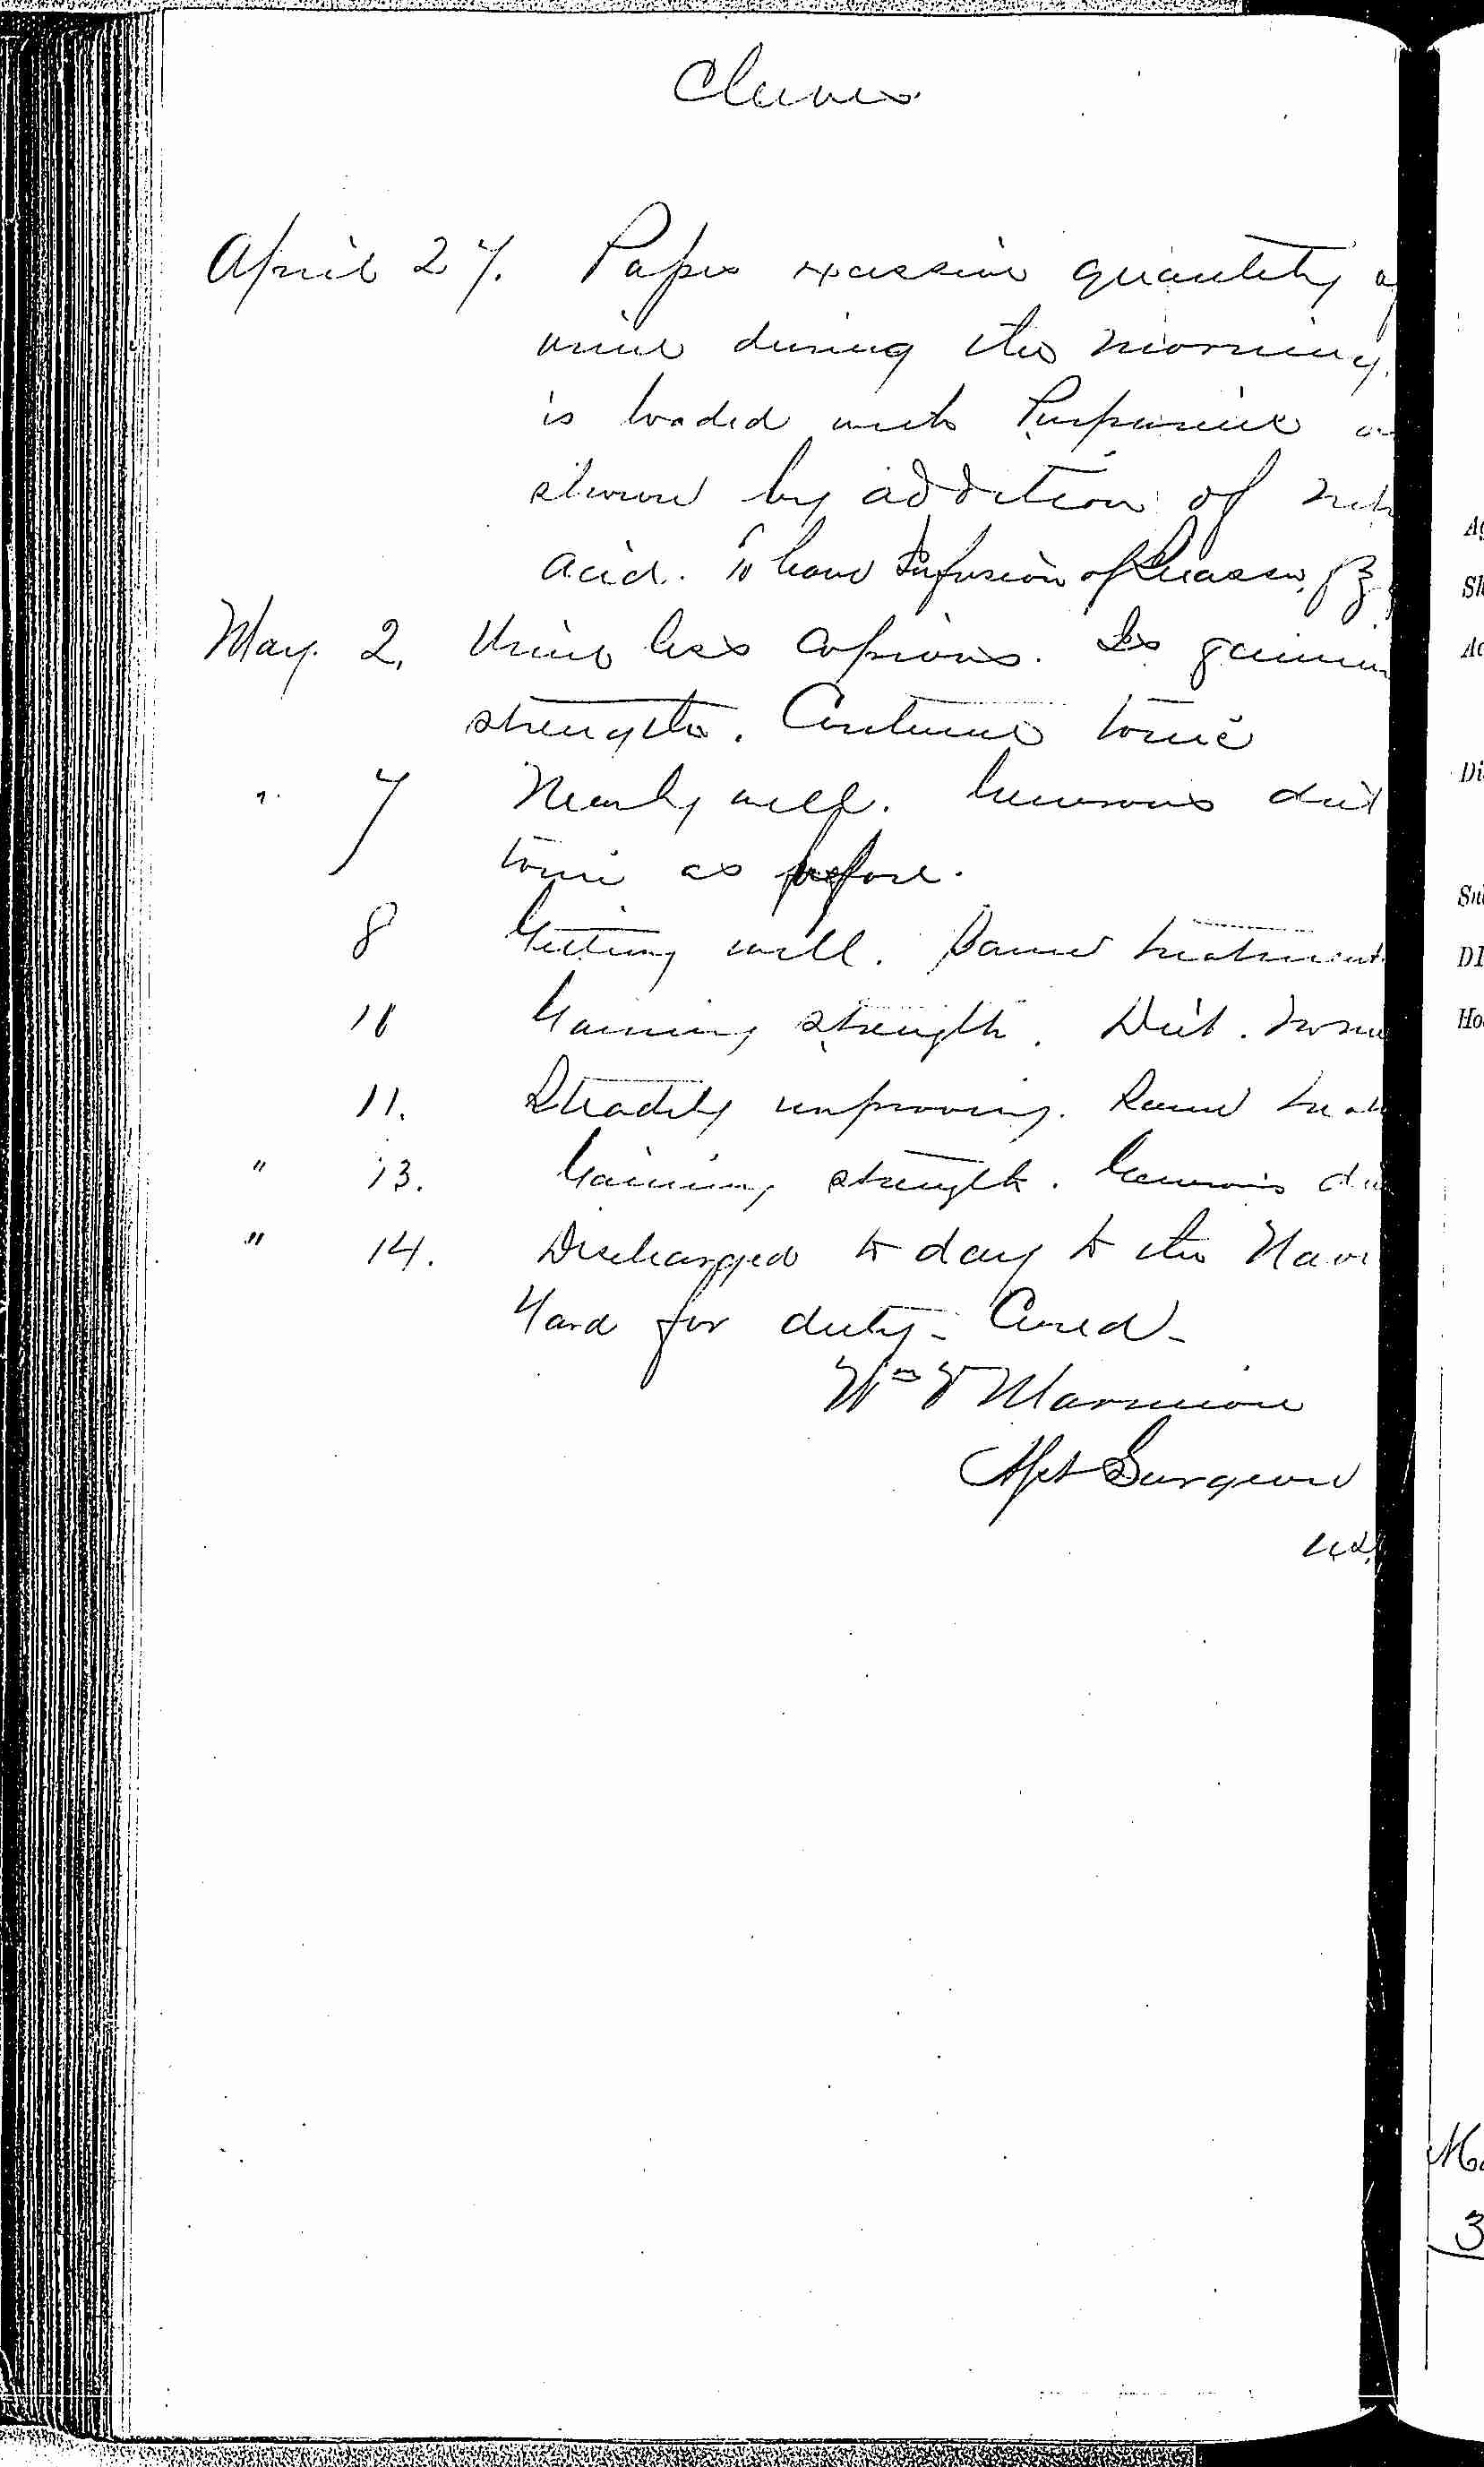 April 27. Passes excessive quantity of
urine during the morning.
is loaded with Purpurine as
shown by addition of nit
acid. To have Infusion of Quassia f℥
May. 2. Urine less copious. Is gainin
strength. Continue tonic
" 7 Nearly well. Generous diet
tonic as before.
8 Getting well. Same treatment
10 Gaining strength. Diet. tonic
11. Steadily improving. Same treat
" 13. Gaining strength. Generous die
" 14. Discharged to day to the Nav
Yard for duty - Cured -
Wm Marmion
Asst Surgeon
U.S.